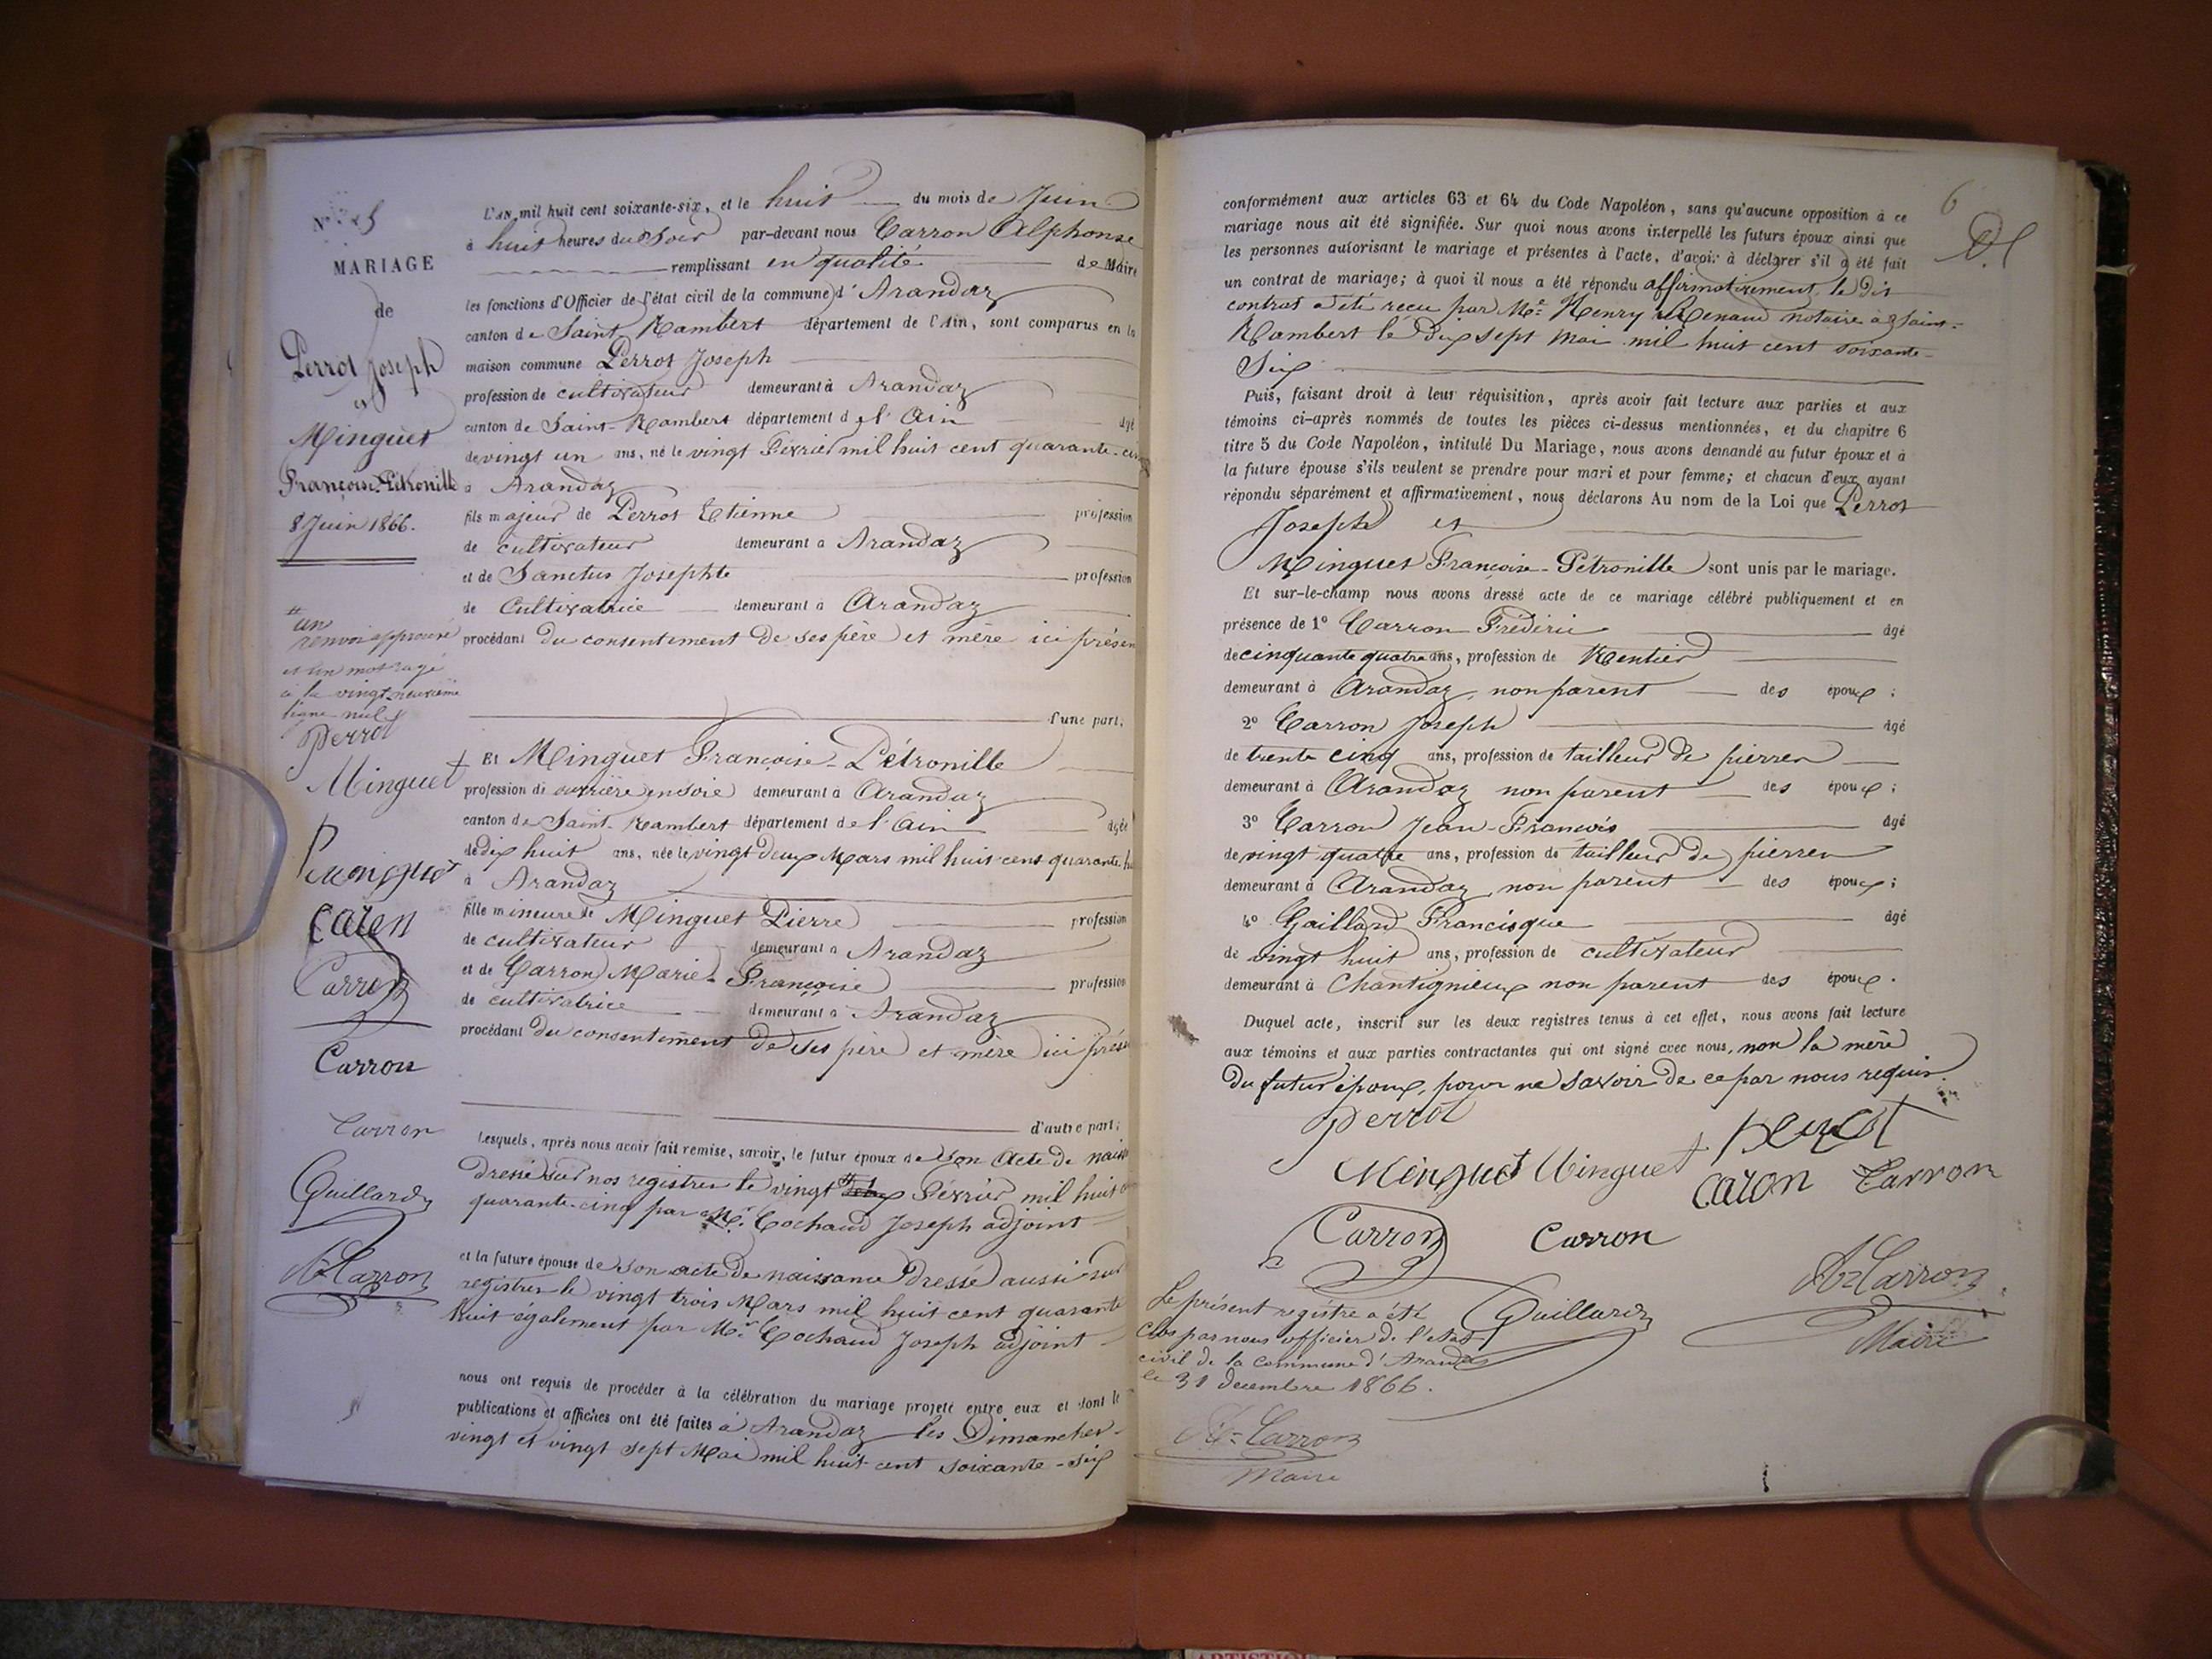 MARIAGE
de
Perrot Joseph
et
Minguet
Françoise-Pétronille
8 Juin 1866.
un
renvoi approuvé
et un mot rayé
à la vingt neuvième
ligne nul
Perrot
Minguet
Minguet
Caron
Carron
Carron
Carron
Guillard
Az Carron
L'AN mil huit cent soixante-six, et le huit du mois de Juin
à huit heures du Soir par-devant nous Carron Alphonse
remplissant en qualité de Maire
les fonctions d'Officier de l'état civil de la commune d'Arandaz
canton de Saint Rambert département de l'Ain, sont comparus en la
maison commune Perrot Joseph
profession de cultivateur demeurant à Arandaz
canton de Saint-Rambert département de l'Ain âgé
de vingt un ans, né le vingt Février mil huit cent quarante-cin
à Arandaz
fils majeur de Perrot Etienne profession
de cultivateur demeurant à Arandaz
et de Sanctus Josephte profession
de Cultivatrice demeurant à Arandaz
procédant du consentement de ses père et mère ici présen
d'une part;
Et Minguet Françoise-Pétronille
profession de ouvrière en soie demeurant à Arandaz
canton de Saint-Rambert département de l'Ain âgée
de dix huit ans, née le vingt deux Mars mil huit cent quarante hu
à Arandaz
fille mineure de Minguet Pierre profession
de cultivateur demeurant à Arandaz
et de Carron Marie-Françoise profession
de cultivatrice demeurant à Arandaz
procédant du consentement de ses père et mère ici prése
d'autre part;
Lesquels, après nous avoir fait remise, savoir, le futur époux de son Acte de naiss
dressé sur nos registres le vingt Février mil huit
quarante-cinq par Mr Cochaud Joseph adjoint
et la future épouse de son acte de naissance dressé aussi sur
registres le vingt trois Mars mil huit cent quarante
huit également par Mr Cochaud Joseph adjoint
nous ont requis de procéder à la célébration du mariage projeté entre eux et dont le
publications et affiches ont été faites à Arandaz les Dimanches
vingt et vingt sept Mai mil huit cent soixante-six
6
conformément aux articles 63 et 64 du Code Napoléon, sans qu'aucune opposition à ce
mariage nous ait été signifiée. Sur quoi nous avons interpellé les futurs époux ainsi que
les personnes autorisant le mariage et présentes à l'acte, d'avoir à déclarer s'il a été fait
un contrat de mariage; à quoi il nous a été répondu affirmativement, le dit
contrat a été reçu par Me Henry Renaud notaire à Saint-
Rambert le dix sept Mai mil huit cent soixante-
Six
Puis, faisant droit à leur réquisition, après avoir fait lecture aux parties et aux
témoins ci-après nommés de toutes les pièces ci-dessus mentionnées, et du chapitre 6
titre 5 du Code Napoléon, intitulé Du Mariage, nous avons demandé au futur époux et à
la future épouse s'ils veulent se prendre pour mari et pour femme; et chacun d'eux ayant
répondu séparément et affirmativement, nous déclarons Au nom de la Loi que Perrot
Joseph et
Minguet Françoise-Pétronille sont unis par le mariage.
Et sur-le-champ nous avons dressé acte de ce mariage célébré publiquement et en
présence de 1° Carron Frédéric âgé
de cinquante quatre ans, profession de Rentier
demeurant à Arandaz, non parent des époux;
2° Carron Joseph âgé
de trente cinq ans, profession de tailleur de pierres
demeurant à Arandaz non parent des époux;
3° Carron Jean-François âgé
de vingt quatre ans, profession de tailleur de pierres
demeurant à Arandaz non parent des époux;
4° Gaillard Francisque âgé
de vingt huit ans, profession de cultivateur
demeurant à Chantignieux non parent des époux.
Duquel acte, inscrit sur les deux registres tenus à cet effet, nous avons fait lecture
aux témoins et aux parties contractantes qui ont signé avec nous, non la mère
du futur époux, pour ne savoir de ce par nous requis.
Perrot
Perrot
Minguet Minguet Caron Carron
Carron Carron
Az Carron
Maire
Guillard
Le présent registre a été
Clos par nous officier de l'état
civil de la commune d'Arandaz
le 31 decembre 1866.
Az Carron
Maire